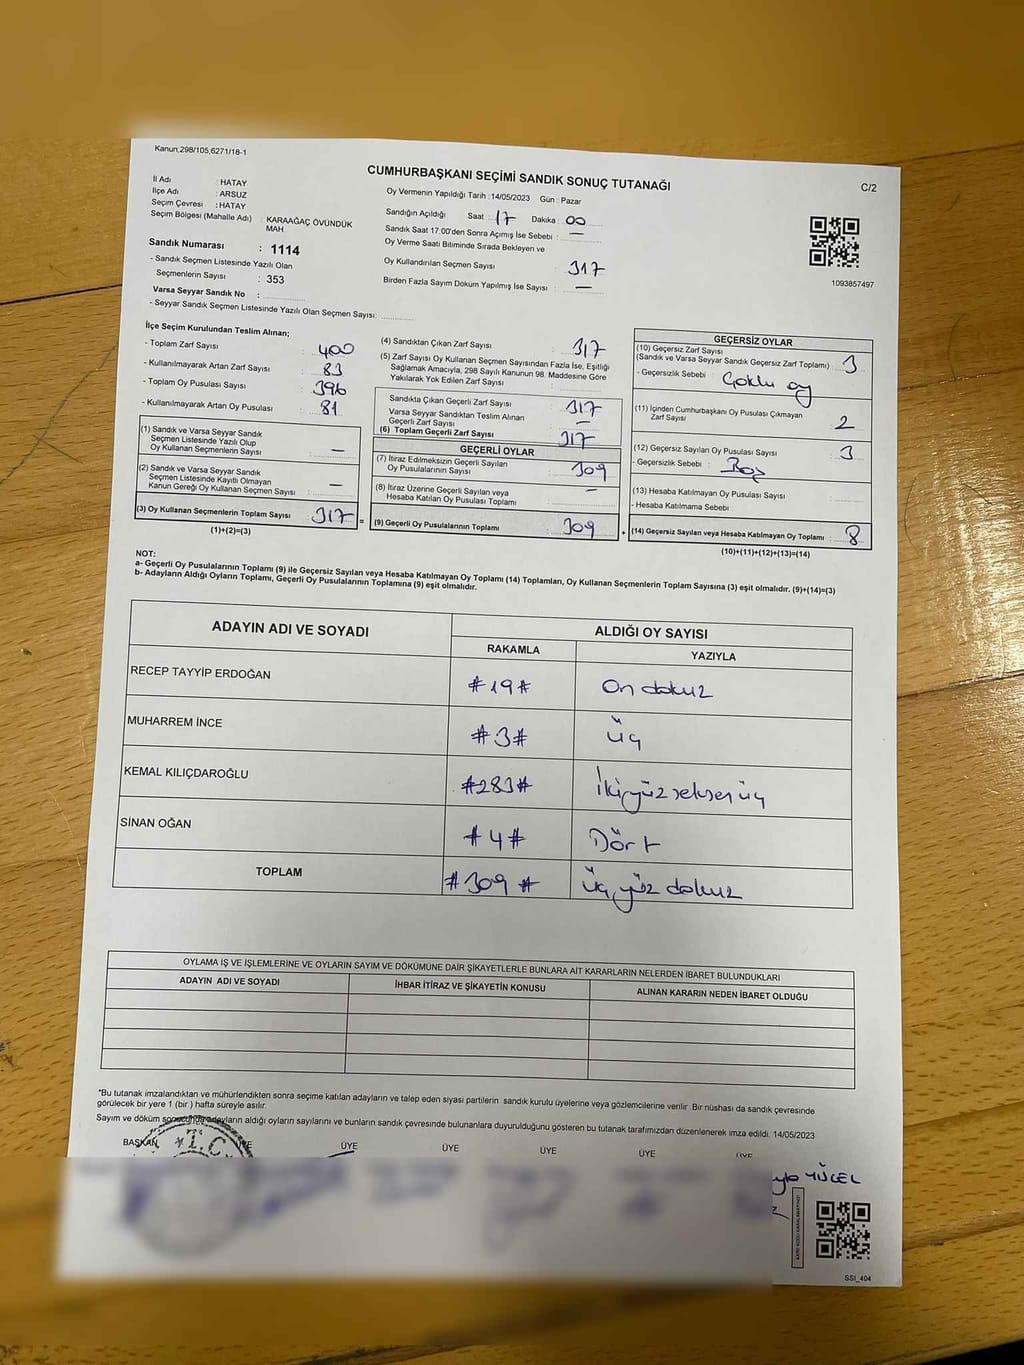 Kanun,298/105,6271/18-1
CUMHURBAŞKANI SEÇİMİ SANDIK SONUÇ TUTANAĞI
C/2
İl Adı : HATAY
İlçe Adı : ARSUZ
Seçim Çevresi : HATAY
Seçim Bölgesi (Mahalle Adı) : KARAAĞAÇ ÖVÜNDÜK
MAH
Sandık Numarası : 1114
- Sandık Seçmen Listesinde Yazılı Olan
Seçmenlerin Sayısı : 353
Varsa Seyyar Sandık No :
- Seyyar Sandık Seçmen Listesinde Yazılı Olan Seçmen Sayısı:
Oy Vermenin Yapıldığı Tarih : 14/05/2023 Gün : Pazar
Sandığın Açıldığı Saat : 17 Dakika : 00
Sandık Saat 17.00'den Sonra Açımış İse Sebebi : —
Oy Verme Saati Bitiminde Sırada Bekleyen ve
Oy Kullandırılan Seçmen Sayısı : 317
Birden Fazla Sayım Döküm Yapılmış İse Sayısı : —
1093857497
İlçe Seçim Kurulundan Teslim Alınan;
- Toplam Zarf Sayısı : 400
- Kullanılmayarak Artan Zarf Sayısı : 83
- Toplam Oy Pusulası Sayısı : 396
- Kullanılmayarak Artan Oy Pusulası : 81
(1) Sandık ve Varsa Seyyar Sandık
Seçmen Listesinde Yazılı Olup
Oy Kullanan Seçmenlerin Sayısı : —
(2) Sandık ve Varsa Seyyar Sandık
Seçmen Listesinde Kayıtlı Olmayan
Kanun Gereği Oy Kullanan Seçmen Sayısı : —
(3) Oy Kullanan Seçmenlerin Toplam Sayısı : 317 =
(1)+(2)=(3)
(4) Sandıktan Çıkan Zarf Sayısı : 317
(5) Zarf Sayısı Oy Kullanan Seçmen Sayısından Fazla İse, Eşitliği
Sağlamak Amacıyla, 298 Sayılı Kanunun 98. Maddesine Göre
Yakılarak Yok Edilen Zarf Sayısı :
Sandıkta Çıkan Geçerli Zarf Sayısı : 317
Varsa Seyyar Sandıktan Teslim Alınan
Geçerli Zarf Sayısı : —
(6) Toplam Geçerli Zarf Sayısı : 317
GEÇERLİ OYLAR
(7) İtiraz Edilmeksizin Geçerli Sayılan
Oy Pusulalarının Sayısı : 309
(8) İtiraz Üzerine Geçerli Sayılan veya
Hesaba Katılan Oy Pusulası Toplamı : —
(9) Geçerli Oy Pusulalarının Toplamı : 309 +
GEÇERSİZ OYLAR
(10) Geçersiz Zarf Sayısı
(Sandık ve Varsa Seyyar Sandık Geçersiz Zarf Toplamı) : 3
- Geçersizlik Sebebi : Çoklu oy
(11) İçinden Cumhurbaşkanı Oy Pusulası Çıkmayan
Zarf Sayısı : 2
(12) Geçersiz Sayılan Oy Pusulası Sayısı : 3
- Geçersizlik Sebebi : Boş
(13) Hesaba Katılmayan Oy Pusulası Sayısı :
- Hesaba Katılmama Sebebi :
(14) Geçersiz Sayılan veya Hesaba Katılmayan Oy Toplamı : 8
(10)+(11)+(12)+(13)=(14)
NOT:
a- Geçerli Oy Pusulalarının Toplamı (9) ile Geçersiz Sayılan veya Hesaba Katılmayan Oy Toplamı (14) Toplamları, Oy Kullanan Seçmenlerin Toplam Sayısına (3) eşit olmalıdır. (9)+(14)=(3)
b- Adayların Aldığı Oyların Toplamı, Geçerli Oy Pusulalarının Toplamına (9) eşit olmalıdır.
ADAYIN ADI VE SOYADI
ALDIĞI OY SAYISI
RAKAMLA YAZIYLA
RECEP TAYYİP ERDOĞAN #19# On dokuz
MUHARREM İNCE #3# üç
KEMAL KILIÇDAROĞLU #283# İkiyüz seksen üç
SİNAN OĞAN #4# Dört
TOPLAM #309# üç yüz dokuz
OYLAMA İŞ VE İŞLEMLERİNE VE OYLARIN SAYIM VE DÖKÜMÜNE DAİR ŞİKAYETLERLE BUNLARA AİT KARARLARIN NELERDEN İBARET BULUNDUKLARI
ADAYIN ADI VE SOYADI İHBAR İTİRAZ VE ŞİKAYETİN KONUSU ALINAN KARARIN NEDEN İBARET OLDUĞU
*Bu tutanak imzalandıktan ve mühürlendikten sonra seçime katılan adayların ve talep eden siyasi partilerin sandık kurulu üyelerine veya gözlemcilerine verilir. Bir nüshası da sandık çevresinde
görülecek bir yere 1 (bir) hafta süreyle asılır.
Sayım ve döküm sonucunda adayların aldığı oyların sayılarını ve bunların sandık çevresinde bulunanlara duyurulduğunu gösteren bu tutanak tarafımızdan düzenlenerek imza edildi. 14/05/2023
BAŞKAN ÜYE ÜYE ÜYE ÜYE ÜYE
T.C.
YÜCEL
SSI_404